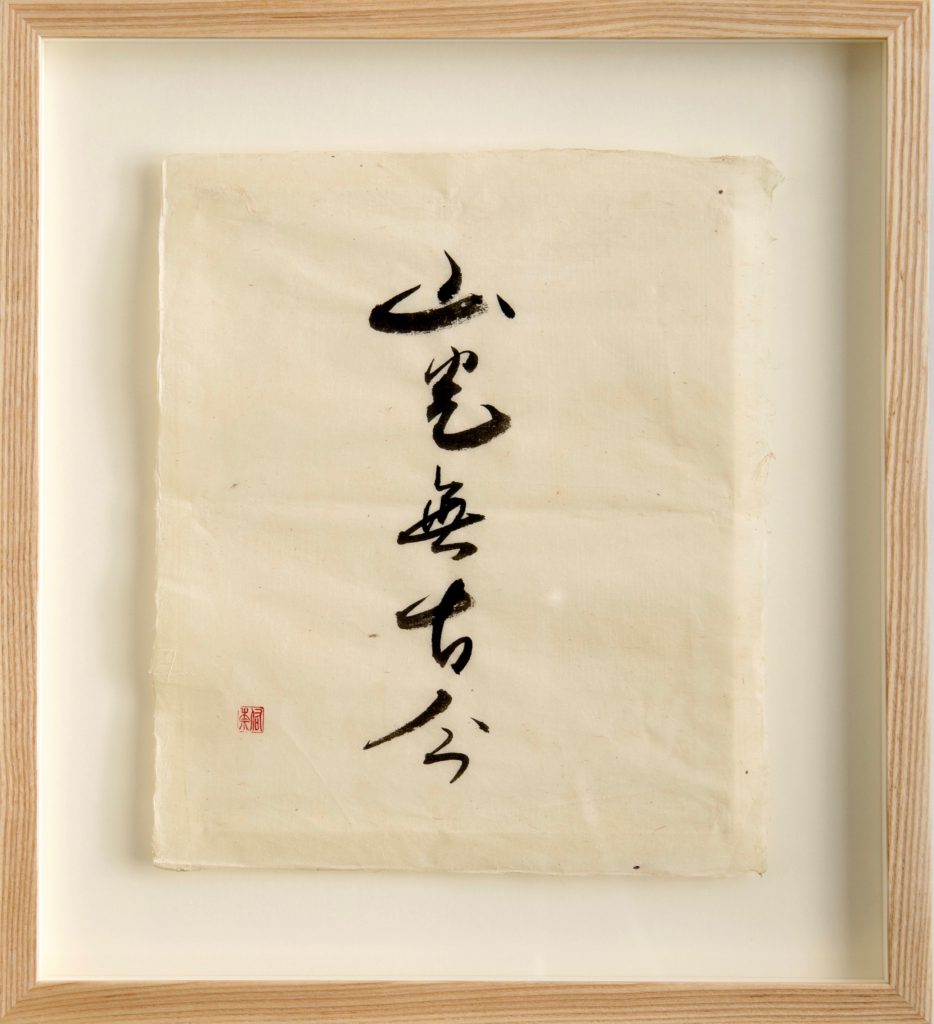 山色無古今